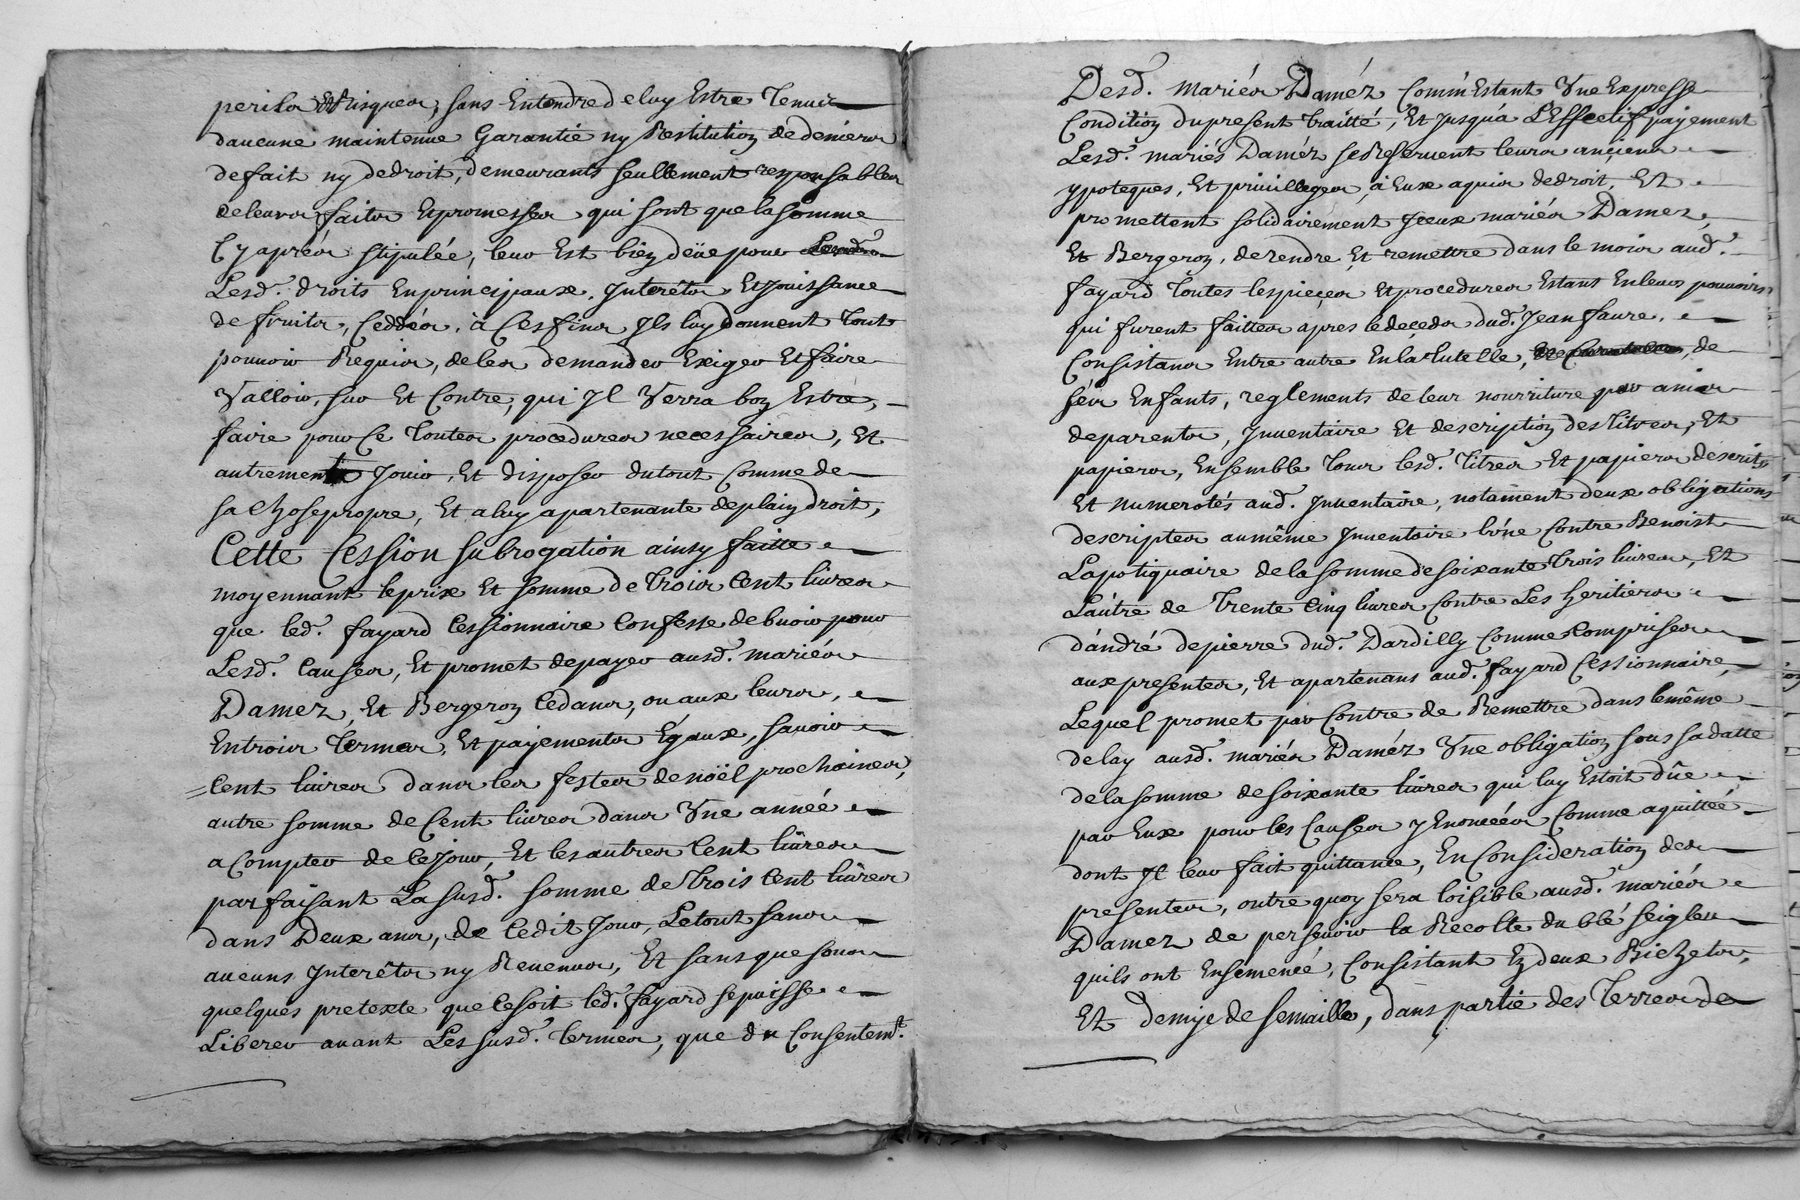 perils et risques, sans Entendre de luy Estre tenus
daucune maintenue Garantie ny Restitution de deniers
de fait ny de droit, demeurants seullement responsables
de leurs faits Et promesses qui sont que la somme
Cy aprés stipulée, leur Est bien deüe pour
Lesd. droits En principaux, Interêts, Et Jouissance
de fruits, Ceddés, à Ces fins Ils luy donnent tout
pouvoir Requis, de les demander Exiger Et faire
Valloir, sur Et Contre, qui Il Verra bon Estre,
faire pour Ce toutes procedures necessaires, Et
autrement Jouir, Et disposer du tout Comme de
sa Chose propre, Et a luy apartenante de plain droit,
Cette Cession subrogation ainsy faitte
moyennant le prix Et somme de trois Cent livres
que led. fayard Cessionnaire Confesse debvoir pour
Lesd. Causes, Et promet de payer ausd. mariés
Damez, Et Bergeron Cedans, ou aux leurs,
En trois termes, Et payements Égaux, savoir
Cent livres dans les festes de noël prochaines,
autre somme de Cent livres dans Une année
a Compter de Ce Jour, Et les autres Cent livres
parfaisant La susd. somme de trois Cent livres
dans Deux ans, de Cedit Jour, Le tout sans
aucuns Interêts ny Revenus, Et sans que sous
quelques pretexte que Ce soit led. fayard se puisse
Liberer avant Les susd. termes, que du Consentemt.
Desd. mariés Daméz Comm'Estant Une Expresse
Condition du present traitté, Et Jusqu'á L'Effectif paÿement
Lesd. mariés Daméz se Reservent leurs anciens
ypoteques, Et privilleges, à Eux aquis de droit, Et
promettent solidairement Iceux mariés Damez,
Et Bergeron, de rendre Et remettre dans le mois aud.
fayard toutes les pieçes Et procedures Estans En leurs pouvoirs
qui furent faittes apres le décedes dud. Jean faure,
Consistans Entre autre En la tutelle, de
sés Enfants, reglements de leur nourriture par amis
de parents, Inventaire Et description des titres, Et
papiers, Ensemble tous lesd. titres Et papiers descrits
Et numerotés aud. Inventaire, notament deux obligations
descriptes au même Inventaire l'úne Contre Benoist
Lapotiquaire de la somme de soixante trois livres, Et
L'aútre de trente Cinq livres Contre Les heritiers
d'andré depierre dud. Dardilly Comme Comprises
aux presentes, Et apartenans aud. fayard Cessionnaire,
Lequel promet par Contre de Remettre dans le même
delay ausd. mariés Daméz Une obligation sous sa datte
de la somme de soixante livres qui luy Estoit dûe
par Eux pour les Causes y Enoncées Comme aquittée
dont Il leur fait quittance, En Consideration des
presentes, outre quoy sera loisible ausd. mariés
Damez de persevoir la Recolte du blé seigle
quils ont Ensemencé, Consistant En deux Bichets,
Et Demye de semaille, dans partie des terres de